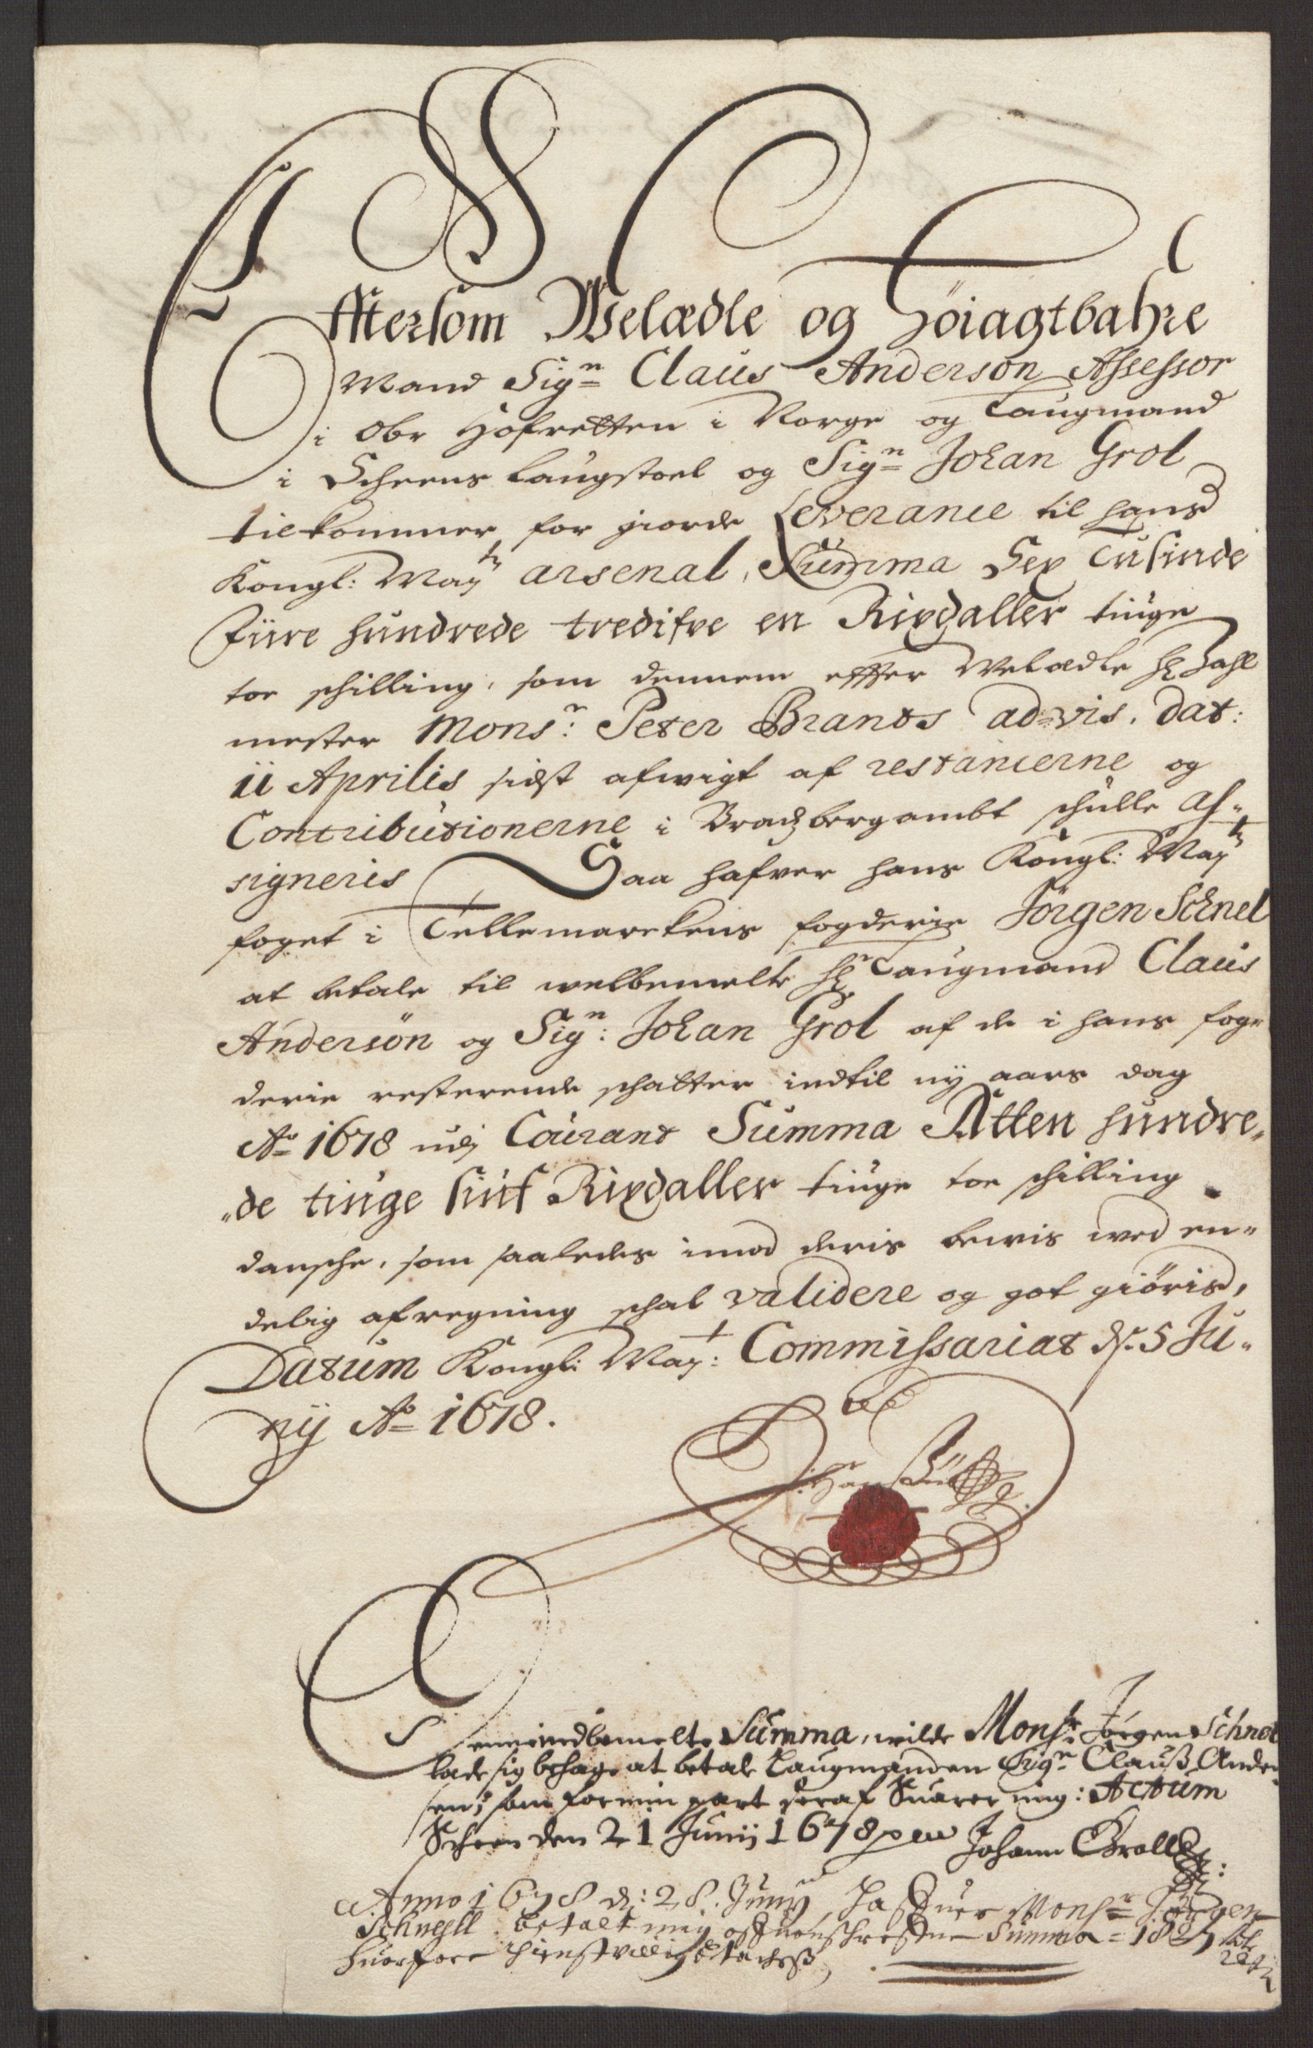 Efftersom Welædle og Höiagtbahre
Mand Sigⁿ Claus Anderson Assessor
i Obr Hofretten i Norge og Laugmand
i Scheens Laugstoel og Sigⁿ Johan Grol
tilkommer, for giorde Leverance til hans
Kongl: Mayᵗˢ arsenal, Summa Sex Tusinde
Fiire hundrede tredifve en Rixdaller tiuge
toe schilling, som dennem effter Welædle Hr Zahl
mester Monsʳ: Peter Brants advis. dat:
11 Aprilis sidst afwigt af restancerne og
Contributionerne i Bradsbergambt schulle As-
signeris Saa hafver hans Kongl: Mayᵗˢ
foget i Tellemarckens fogderie Jörgen Schnel
at betale til welbemelte Hr Laugmand Claus
Andersön og Sigⁿ: Johan Grol af de i hans fog-
derie resterende schatter indtil ny aars dag
Aº 1678 udj Courant Summa Atten hundre-
de tiuge siuf Rixdaller tiuge toe schilling
dansche, som saaledes imod deris bewis wed en-
delig afregning schal validere og got giöris,
Datum Kongl: Mayᵗ: Commissariat d. 5 Ju-
nij Aº 1678.
Hans
bemelte Summa, wilde Monsʳ Jörgen Schnel
lade sig behage at betale Laugmanden Sigⁿ Clauß Ander
sen, som for min part deraf Suarer mig: Actum
Scheen den 21 Junij 1678
Johann Grolle
Anno 1678 d: 28. Junij, hafuer Monsʳ Jörgen
Schnell betalt mig ofuenschrefne Summa = 1827 rdr
huorfore tienstvillig betackes 22 ß